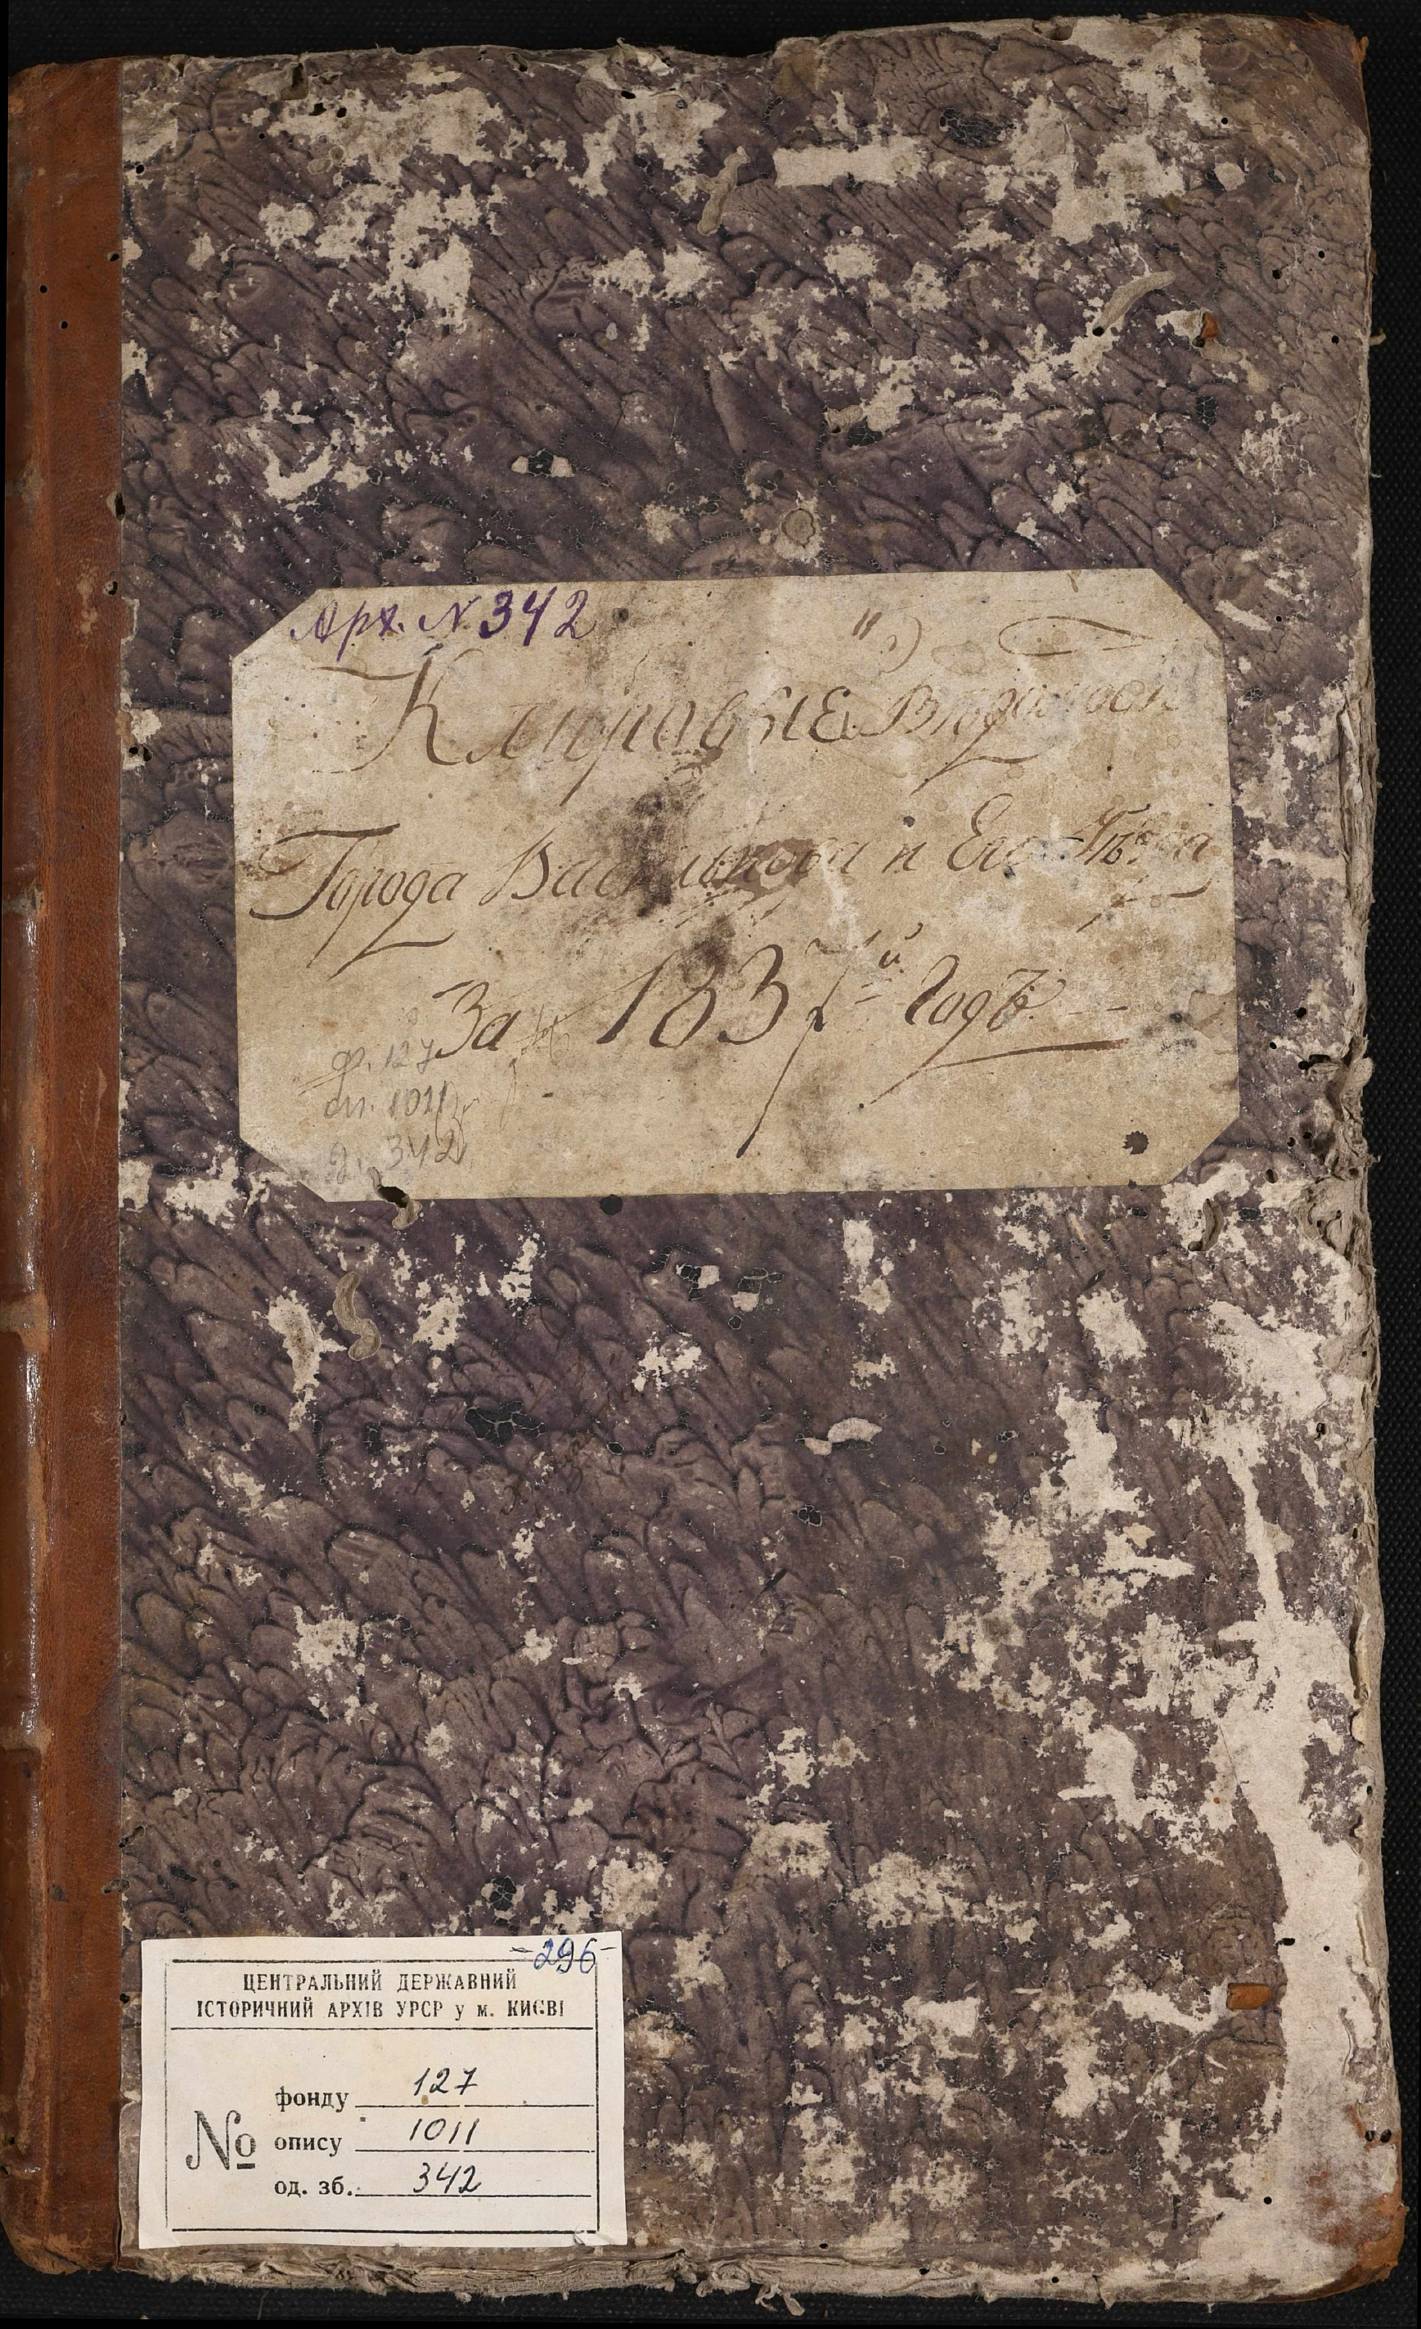 Арх. N. 342
Клировые Вѣдомости
Города Василькова и Его Уѣзда
За 1837й Годъ
ф. 127
оп. 1011
д. 342
-296-
ЦЕНТРАЛЬНИЙ ДЕРЖАВНИЙ
ІСТОРИЧНИЙ АРХІВ УРСР у м. КИЄВІ
фонду 127
№ опису 1011
од. зб. 342